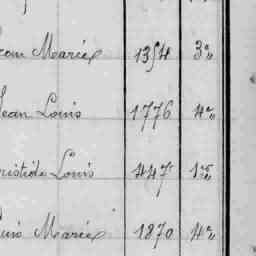 Marie 1354 3e
Jean Louis 1776 4e
Aristide Louis 447 1re
Louis Marie 1870 4e